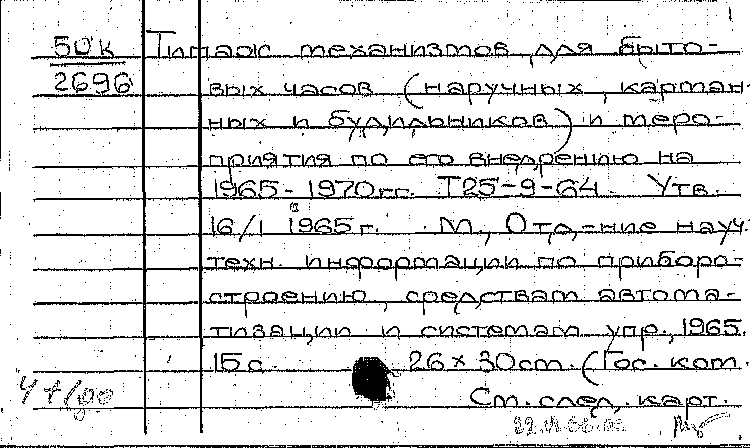 50к Типаж механизмов для быто-
2696 вых часов (наручных, карман-
ных и будильников) и меро-
приятия по его внедрению на
1965-1970гг. Т25-9-64. Утв.
16/I 1965г. М., Отд-ние науч.
техн. информации по приборо-
строению, средствам автома-
тизации и системам упр., 1965.
15с. 26x30см. (Гос. ком.
См. след. карт.